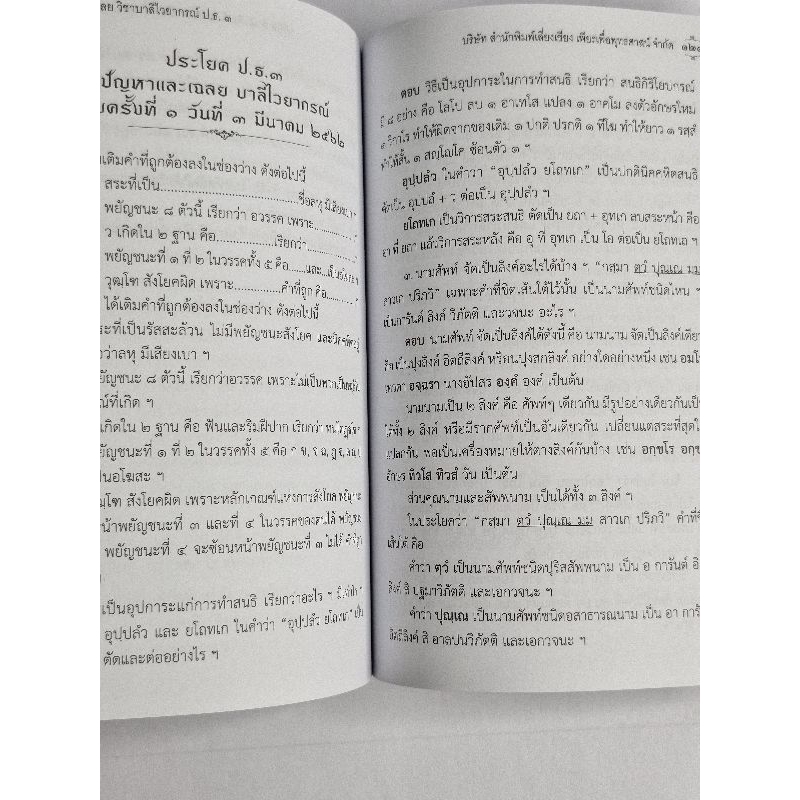 ลย วิชาบาลีไวยากรณ์ ป.ธ. ๓
ประโยค ป.ธ.๓
ปัญหาและเฉลย บาลีไวยากรณ์
ครั้งที่ ๑ วันที่ ๓ มีนาคม ๒๕๖๒
เติมคำที่ถูกต้องลงในช่องว่าง ดังต่อไปนี้
สระที่เป็น..............................ชื่อลหุ มีเสียงเบา ฯ
พยัญชนะ ๘ ตัวนี้ เรียกว่า อวรรค เพราะ..................ฯ
ว เกิดใน ๒ ฐาน คือ.................เรียกว่า................
พยัญชนะที่ ๑ ที่ ๒ ในวรรคทั้ง ๕ คือ......และ...เป็น
วุฒฺโฑ สังโยคผิด เพราะ................คำที่ถูก คือ.............ฯ
ได้เติมคำที่ถูกต้องลงในช่องว่าง ดังต่อไปนี้
ระที่เป็นรัสสะล้วน ไม่มีพยัญชนะสังโยค และนิคคหิตอยู่
อว่าลหุ มีเสียงเบา ฯ
ยัญชนะ ๘ ตัวนี้ เรียกว่าอวรรค เพราะไม่เป็นพวกเป็นหมู่กัน
ณ์ที่เกิด ฯ
เกิดใน ๒ ฐาน คือ ฟันและริมฝีปาก เรียกว่า
พยัญชนะที่ ๑ ที่ ๒ ในวรรคทั้ง ๕ คือ ก ข, จ ฉ, ฏ ฐ,
นอโฆสะ ฯ
ฒฺโฑ สังโยคผิด เพราะหลักเกณฑ์แห่งการสังโยค พยัญชนะ
น้าพยัญชนะที่ ๓ และที่ ๔ ในวรรคของตนได้ พยัญชนะ
พยัญชนะที่ ๔ จะซ้อนหน้าพยัญชนะที่ ๓ ไม่ได้
เป็นอุปการะแก่การทำสนธิ เรียกว่าอะไร ฯ มีเท่าไร
อุปฺปลํว และ ยโถทเก ในคำว่า “อุปฺปลํว ยโถทเก” เป็น
ตัดและต่ออย่างไร ฯ
บริษัท สำนักพิมพ์เลี่ยงเชียง เพียรเพื่อพุทธศาสน์ จำกัด
ตอบ วิธีเป็นอุปการะในการทำสนธิ เรียกว่า สนธิกิริโยปกรณ์
มี ๘ อย่าง คือ โลโป ลบ ๑ อาเทโส แปลง ๑ อาคโม ลงตัวอักษรใหม่
๑ วิกาโร ทำให้ผิดจากของเดิม ๑ ปกติ ปรกติ ๑ ทีโฆ ทำให้ยาว ๑ รสฺสํ
ทำให้สั้น ๑ สญฺโญโค ซ้อนตัว ๑ ฯ
อุปฺปลํว ในคำว่า “อุปฺปลํว ยโถทเก” เป็นปกตินิคคหิตสนธิ
ตัดเป็น อุปฺปลํ + ว ต่อเป็น อุปฺปลํว ฯ
ยโถทเก เป็นวิการสระสนธิ ตัดเป็น ยถา + อุทเก ลบสระหน้า คือ
อา ที่ ยถา แล้ววิการสระหลัง คือ อุ ที่ อุทเก เป็น โอ ต่อเป็น ยโถทเก ฯ
๓. นามศัพท์ จัดเป็นลิงค์อะไรได้บ้าง ฯ “กสฺมา ตฺวํ ปุณฺเณ มม
สาวเก ปริภวิ” เฉพาะคำที่ขีดเส้นใต้ไว้นั้น เป็นนามศัพท์ชนิดไหน ฯ
เป็นการันต์ ลิงค์ วิภัตติ และวจนะ อะไร ฯ
ตอบ นามศัพท์ จัดเป็นลิงค์ได้ดังนี้ คือ นามนาม จัดเป็นลิงค์เดียว
คือเป็นปุงลิงค์ อิตถีลิงค์ หรือนปุงสกลิงค์ อย่างใดอย่างหนึ่ง เช่น อมโร
เทวดา อจฺฉรา นางอัปสร องฺคํ องค์ เป็นต้น
นามนามเป็น ๒ ลิงค์ คือ ศัพท์ๆ เดียวกัน มีรูปอย่างเดียวกันเป็น
ได้ทั้ง ๒ ลิงค์ หรือมีรากศัพท์เป็นอันเดียวกัน เปลี่ยนแต่สระที่สุดให้
แปลกกัน พอเป็นเครื่องหมายให้ต่างลิงค์กันบ้าง เช่น อกฺขโร
อักษร ทิวโส ทิวสํ วัน เป็นต้น
ส่วนคุณนามและสัพพนาม เป็นได้ทั้ง ๓ ลิงค์ ฯ
ในประโยคว่า “กสฺมา ตฺวํ ปุณฺเณ มม สาวเก ปริภวิ” คำที่ขีด
เส้นใต้ คือ
คำว่า ตฺวํ เป็นนามศัพท์ชนิดปุริสสัพพนาม เป็น อ การันต์
ลิงค์ สิ ปฐมาวิภัตติ และเอกวจนะ ฯ
คำว่า ปุณฺเณ เป็นนามศัพท์ชนิดอสาธารณนาม เป็น อา การันต์
อิตถีลิงค์ สิ อาลปนวิภัตติ และเอกวจนะ ฯ